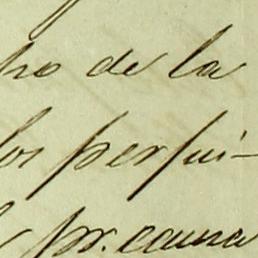 de la
los perjui-
pr. causa